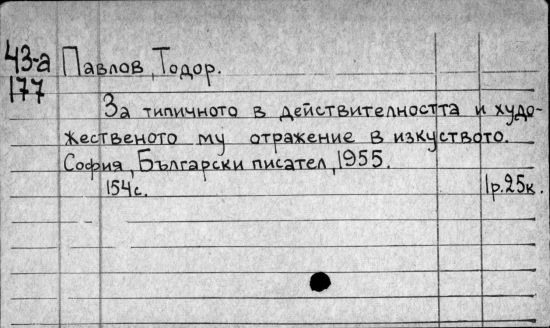 43-а Павлов, Тодор.
177
За типичното в действителността и худо-
жественото му отражение в изкуството.
София, Български писател, 1955.
154с. 1р.25к.